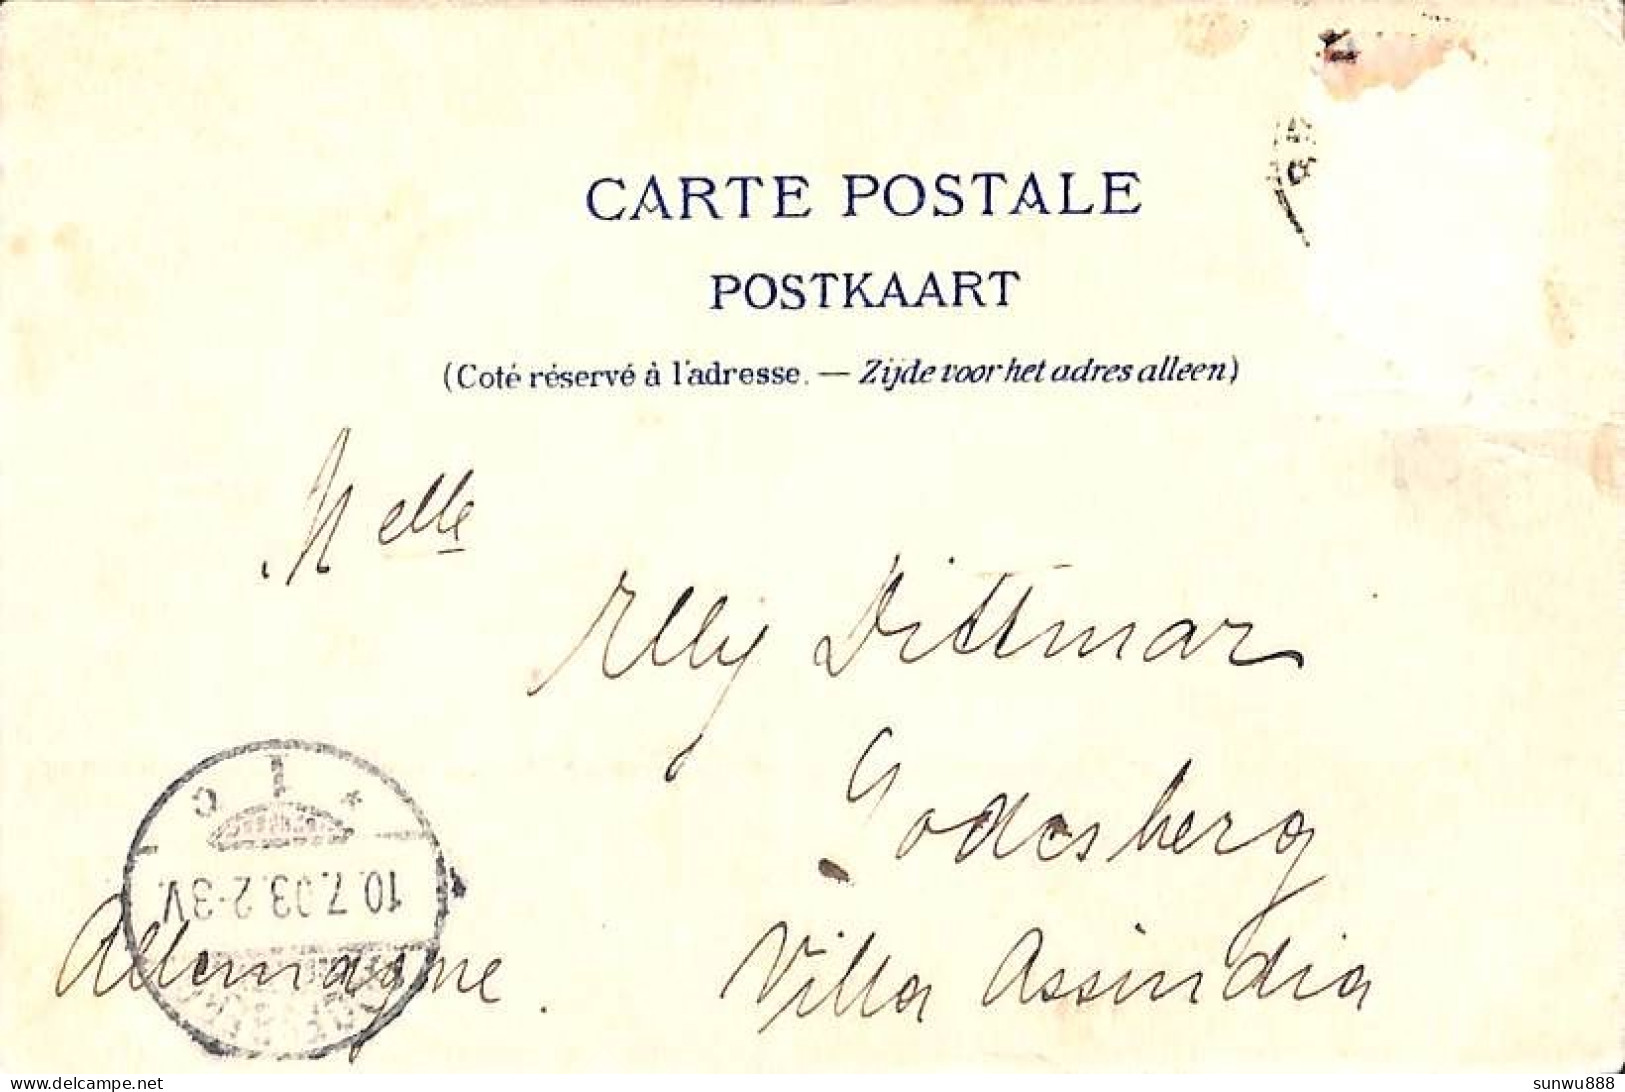 CARTE POSTALE
POSTKAART
(Coté réservé à l'adresse. — Zijde voor het adres alleen)
Melle
Elly Dittmar
Godesberg
Villa Assindia
Allemagne.
10.7.03.2-3V.
delcampe.net
sunwu888